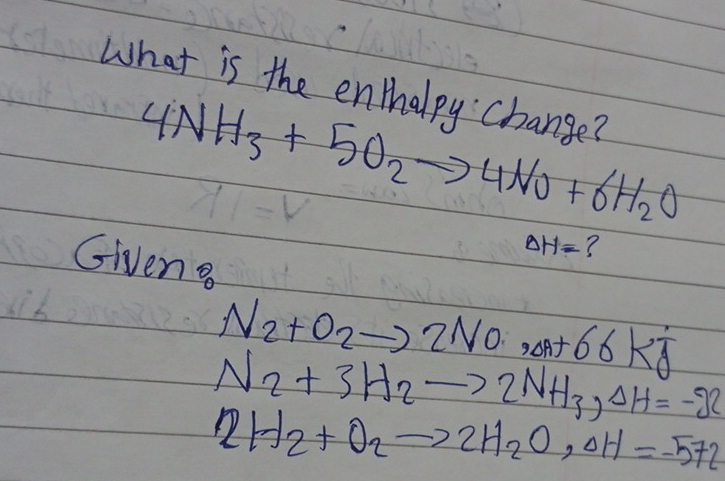 What is the enthalpy change?
4NH₃ + 5O₂ → 4NO + 6H₂O
ΔH = ?
Given:
N₂ + O₂ → 2NO, ΔH + 66 kJ
N₂ + 3H₂ → 2NH₃, ΔH = -92
2H₂ + O₂ → 2H₂O, ΔH = -572
V = IR